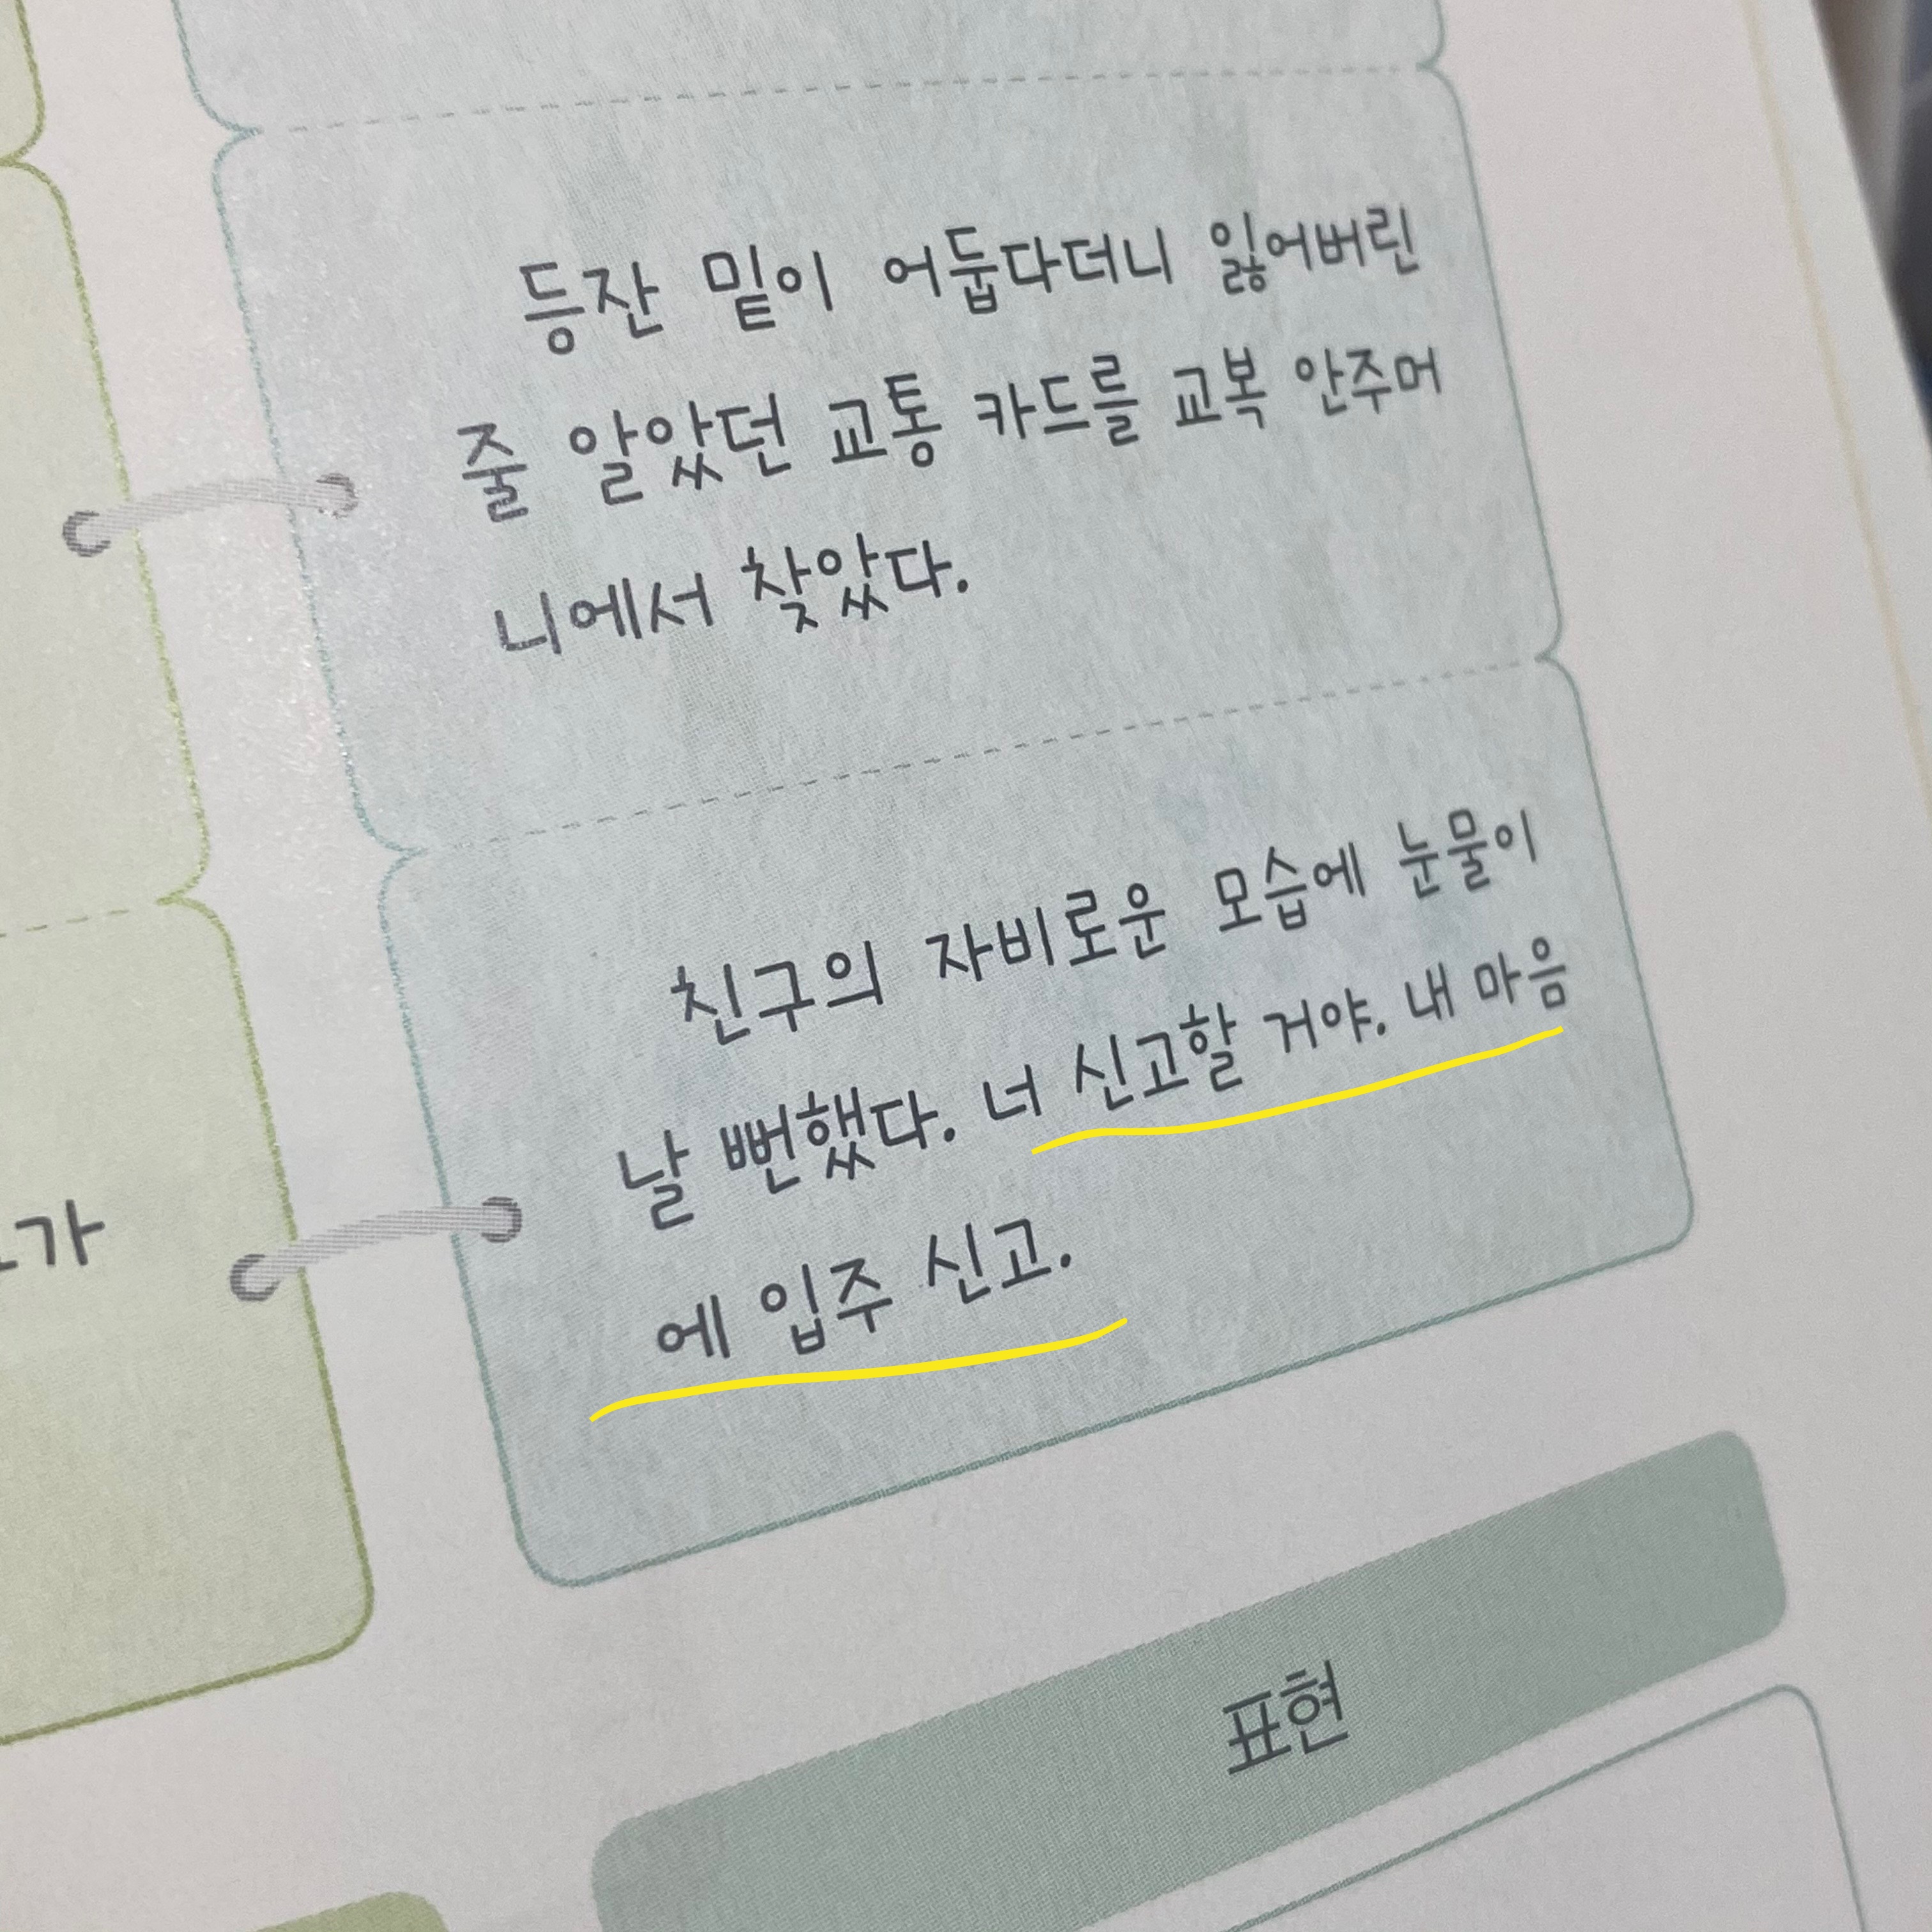 등잔 밑이 어둡다더니 잃어버린
줄 알았던 교통 카드를 교복 안주머
니에서 찾았다.
친구의 자비로운 모습에 눈물이
날 뻔했다. 너 신고할 거야. 내 마음
에 입주 신고.
가
표현